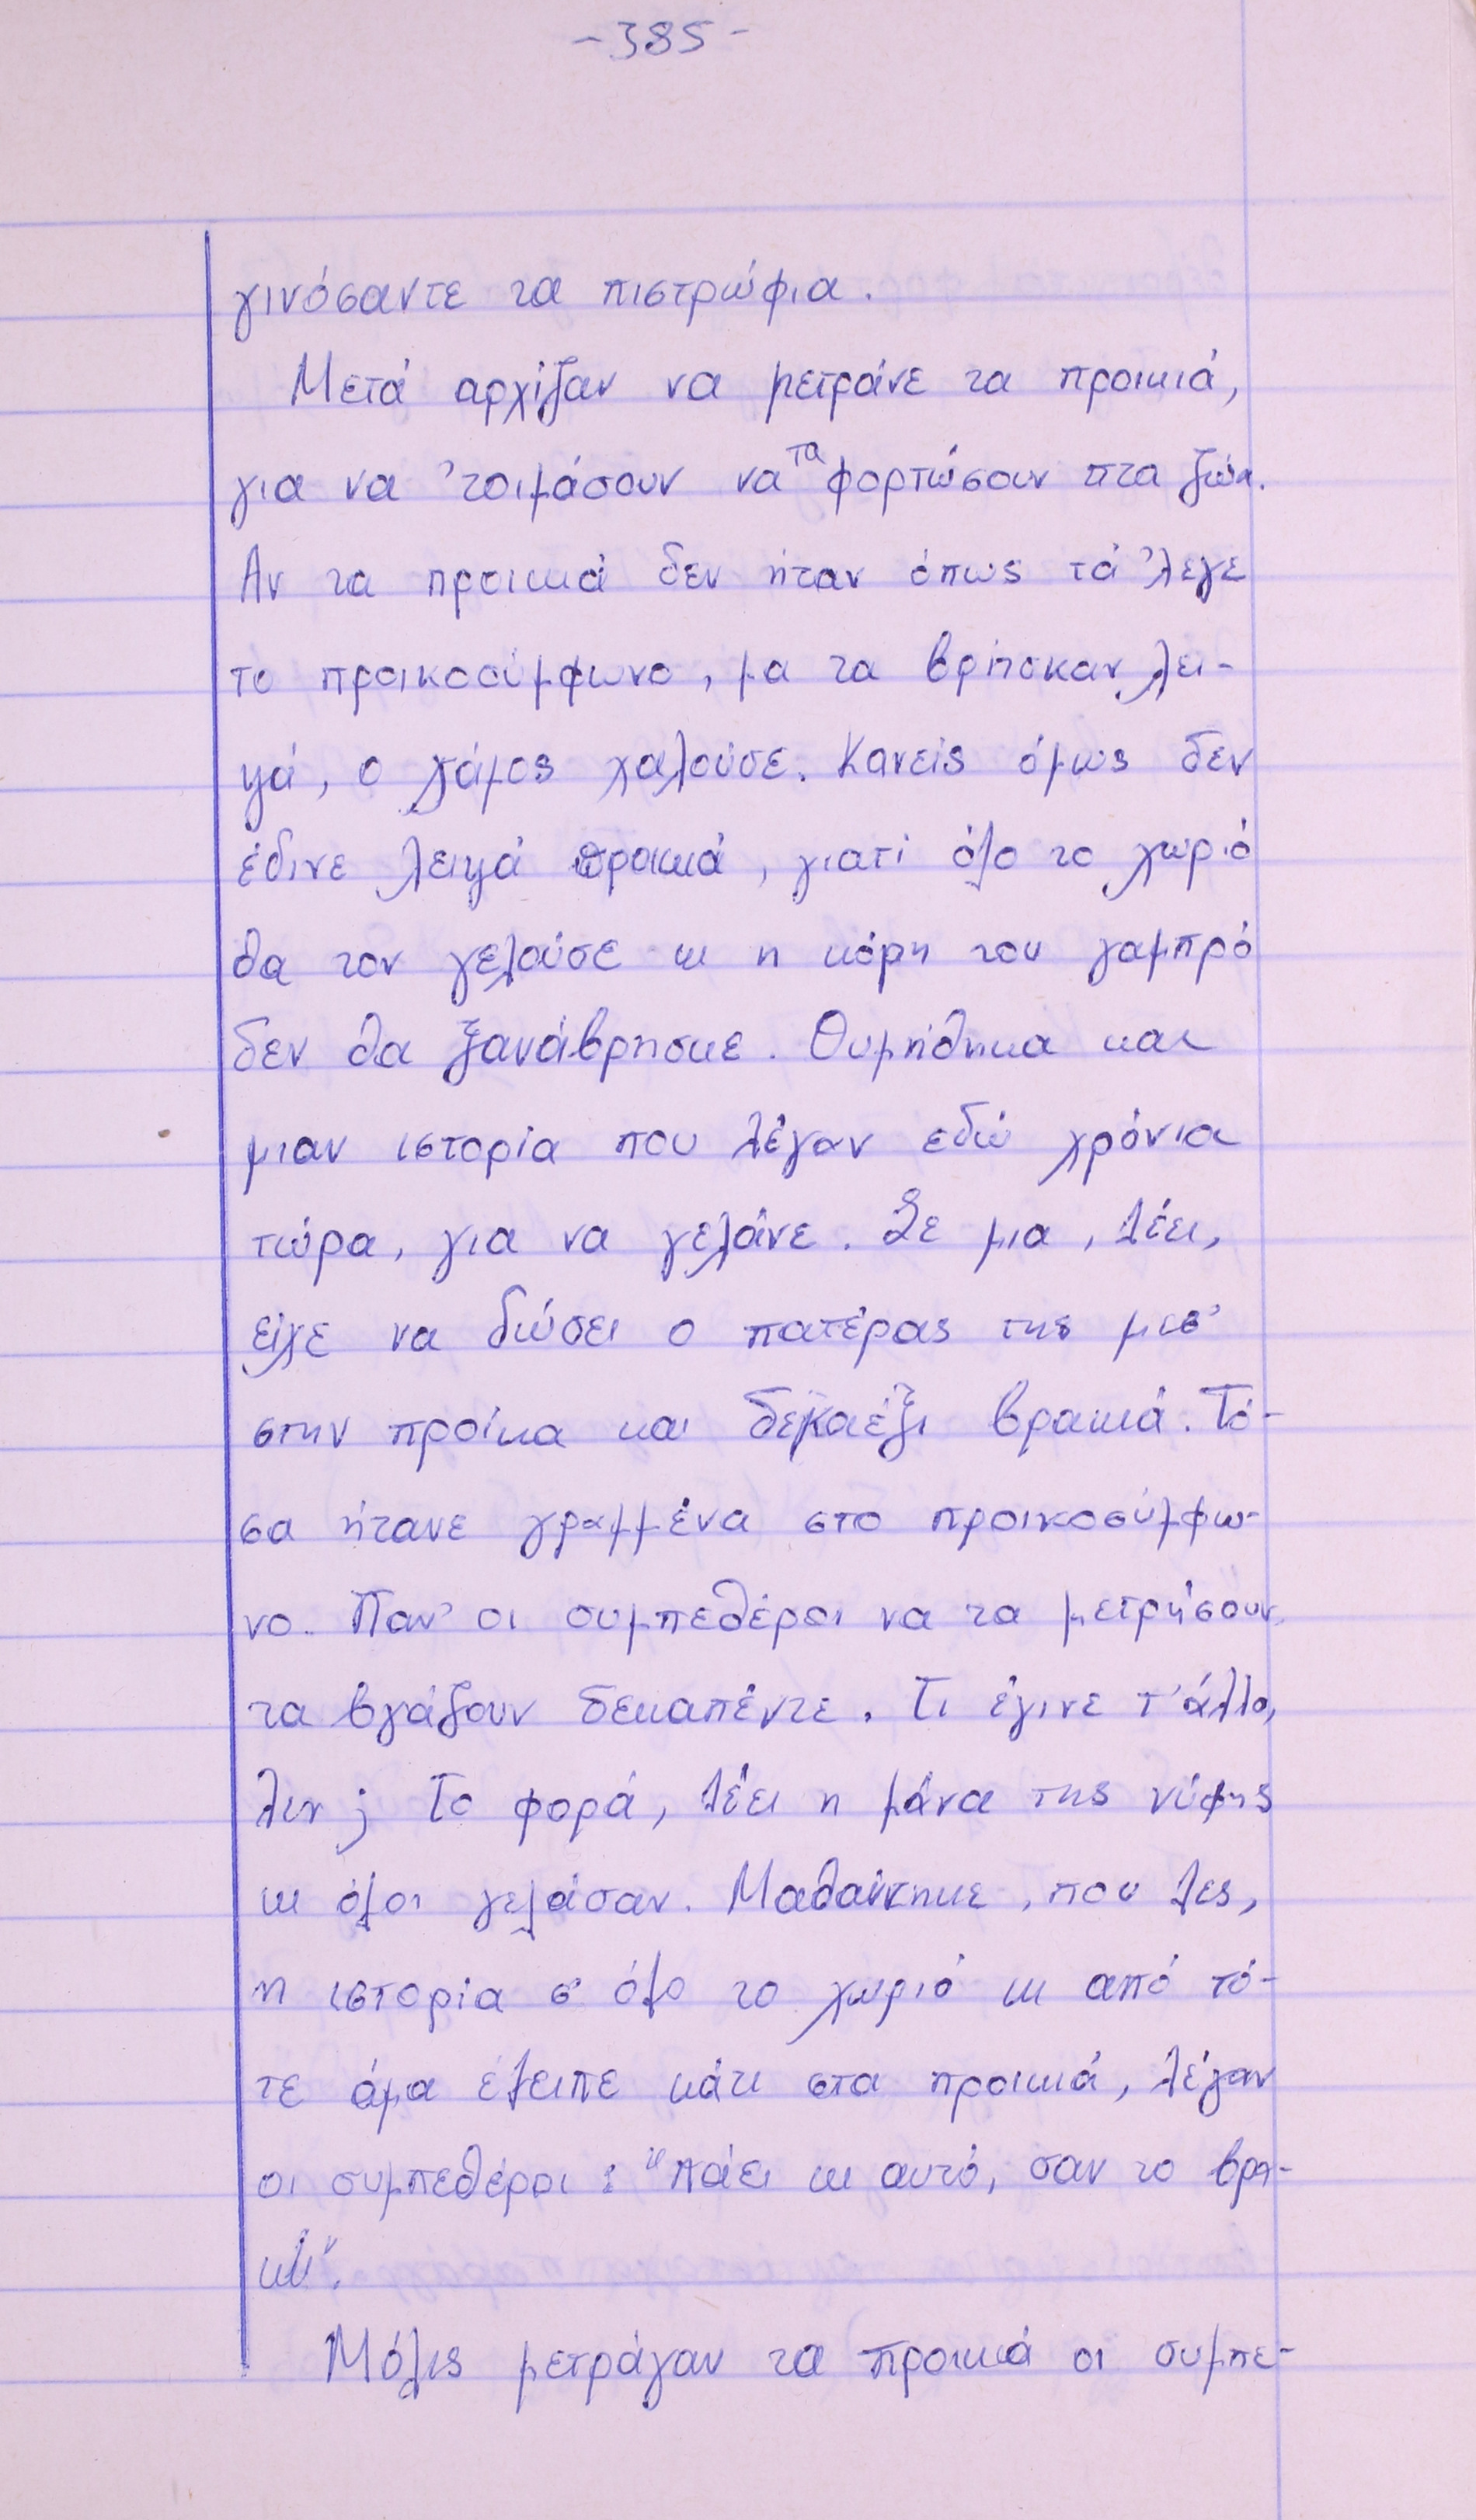 -385-
γινόσαντε τα πιστρώφια.
Μετά αρχίζαν να μετράνε τα προικιά,
για να 'τοιμάσουν να τα φορτώσουν πτα ζώα.
Αν τα προικιά δεν ήταν όπως τά 'λεγε
το προικοσύμφωνο, μα τα βρήσκαν λει-
ψά, ο γάμος χαλούσε. Κανείς όμως δεν
έδινε λειψά προικιά, γιατί όλο το χωριό
θα τον γελούσε κι η κόρη του γαμπρό
δεν θα ξανάβρησκε. Θυμήθηκα και
μιαν ιστορία που λέγαν εδώ χρόνια
τώρα, για να γελάνε. Σε μια, λέει,
είχε να δώσει ο πατέρας της μεσ'
στην προίκα και δεκαέξι βρακιά. Τό-
σα ήτανε γραμμένα στο προικοσύμφω-
νο. Παν' οι συμπεθέροι να τα μετρήσουν
τα βγάζουν δεκαπέντε. Τι έγινε τ' άλλο,
λεν; Το φορά, λέει η μάνα της νύφης
κι όλοι γελάσαν. Μαθαύτηκε, που λες,
η ιστορία σ' όλο το χωριό κι από τό-
τε άμα έλειπε κάτι στα προικιά, λέγαν
οι συμπεθέροι: "πάει κι αυτό, σαν το βρα-
κί".
Μόλις μετράγαν τα προικιά οι συμπε-